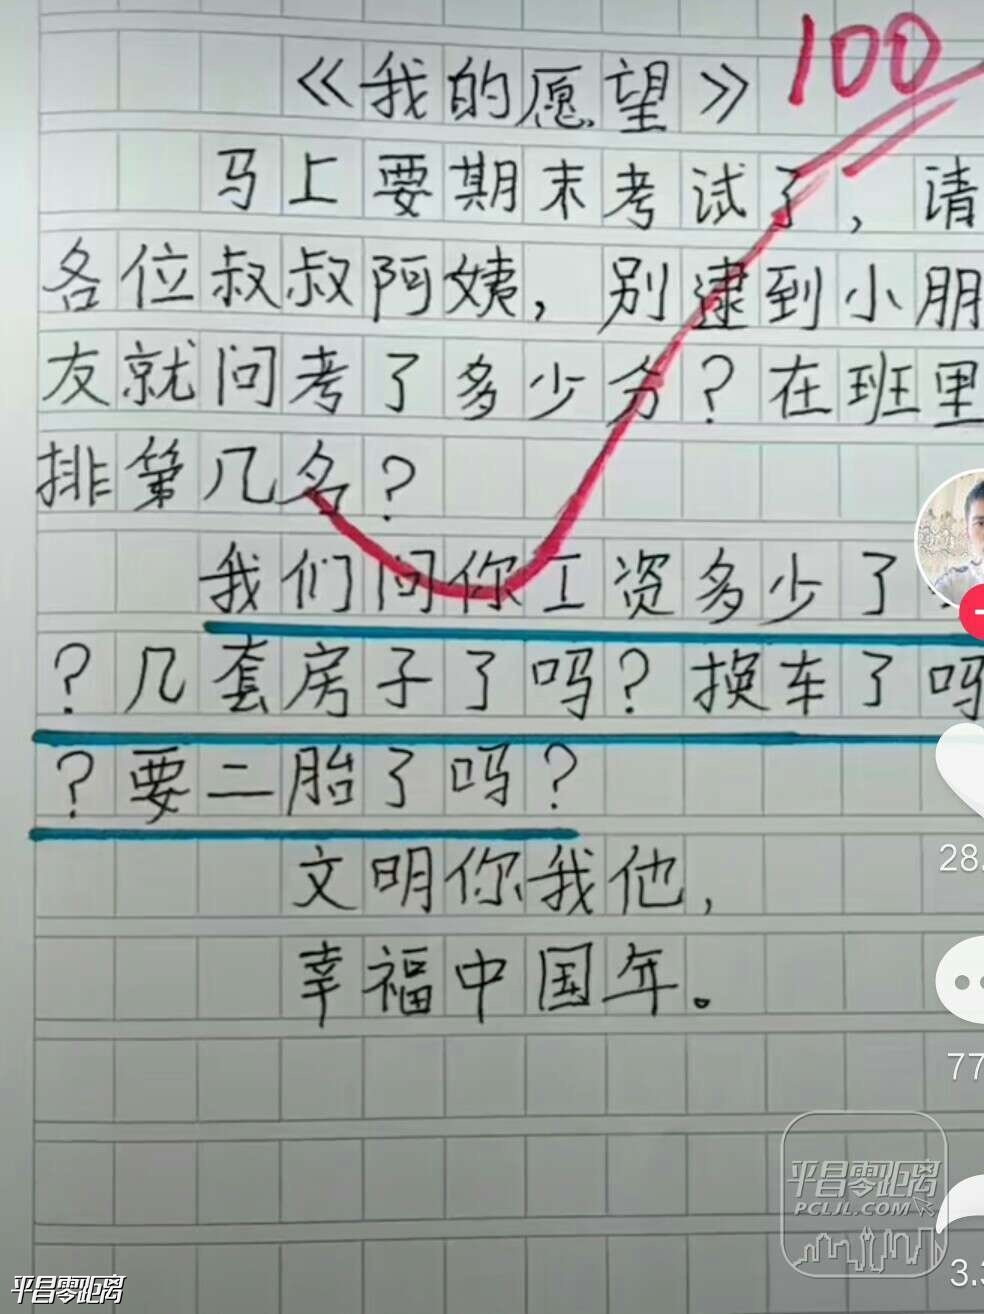 《我的愿望》
100
马上要期末考试了，请
各位叔叔阿姨，别逮到小朋
友就问考了多少分？在班里
排第几名？
我们问你工资多少了
？几套房子了吗？换车了吗
？要二胎了吗？
文明你我他，
幸福中国年。
28.
77
3.3
平昌零距离
PCLJL.COM
平昌零距离